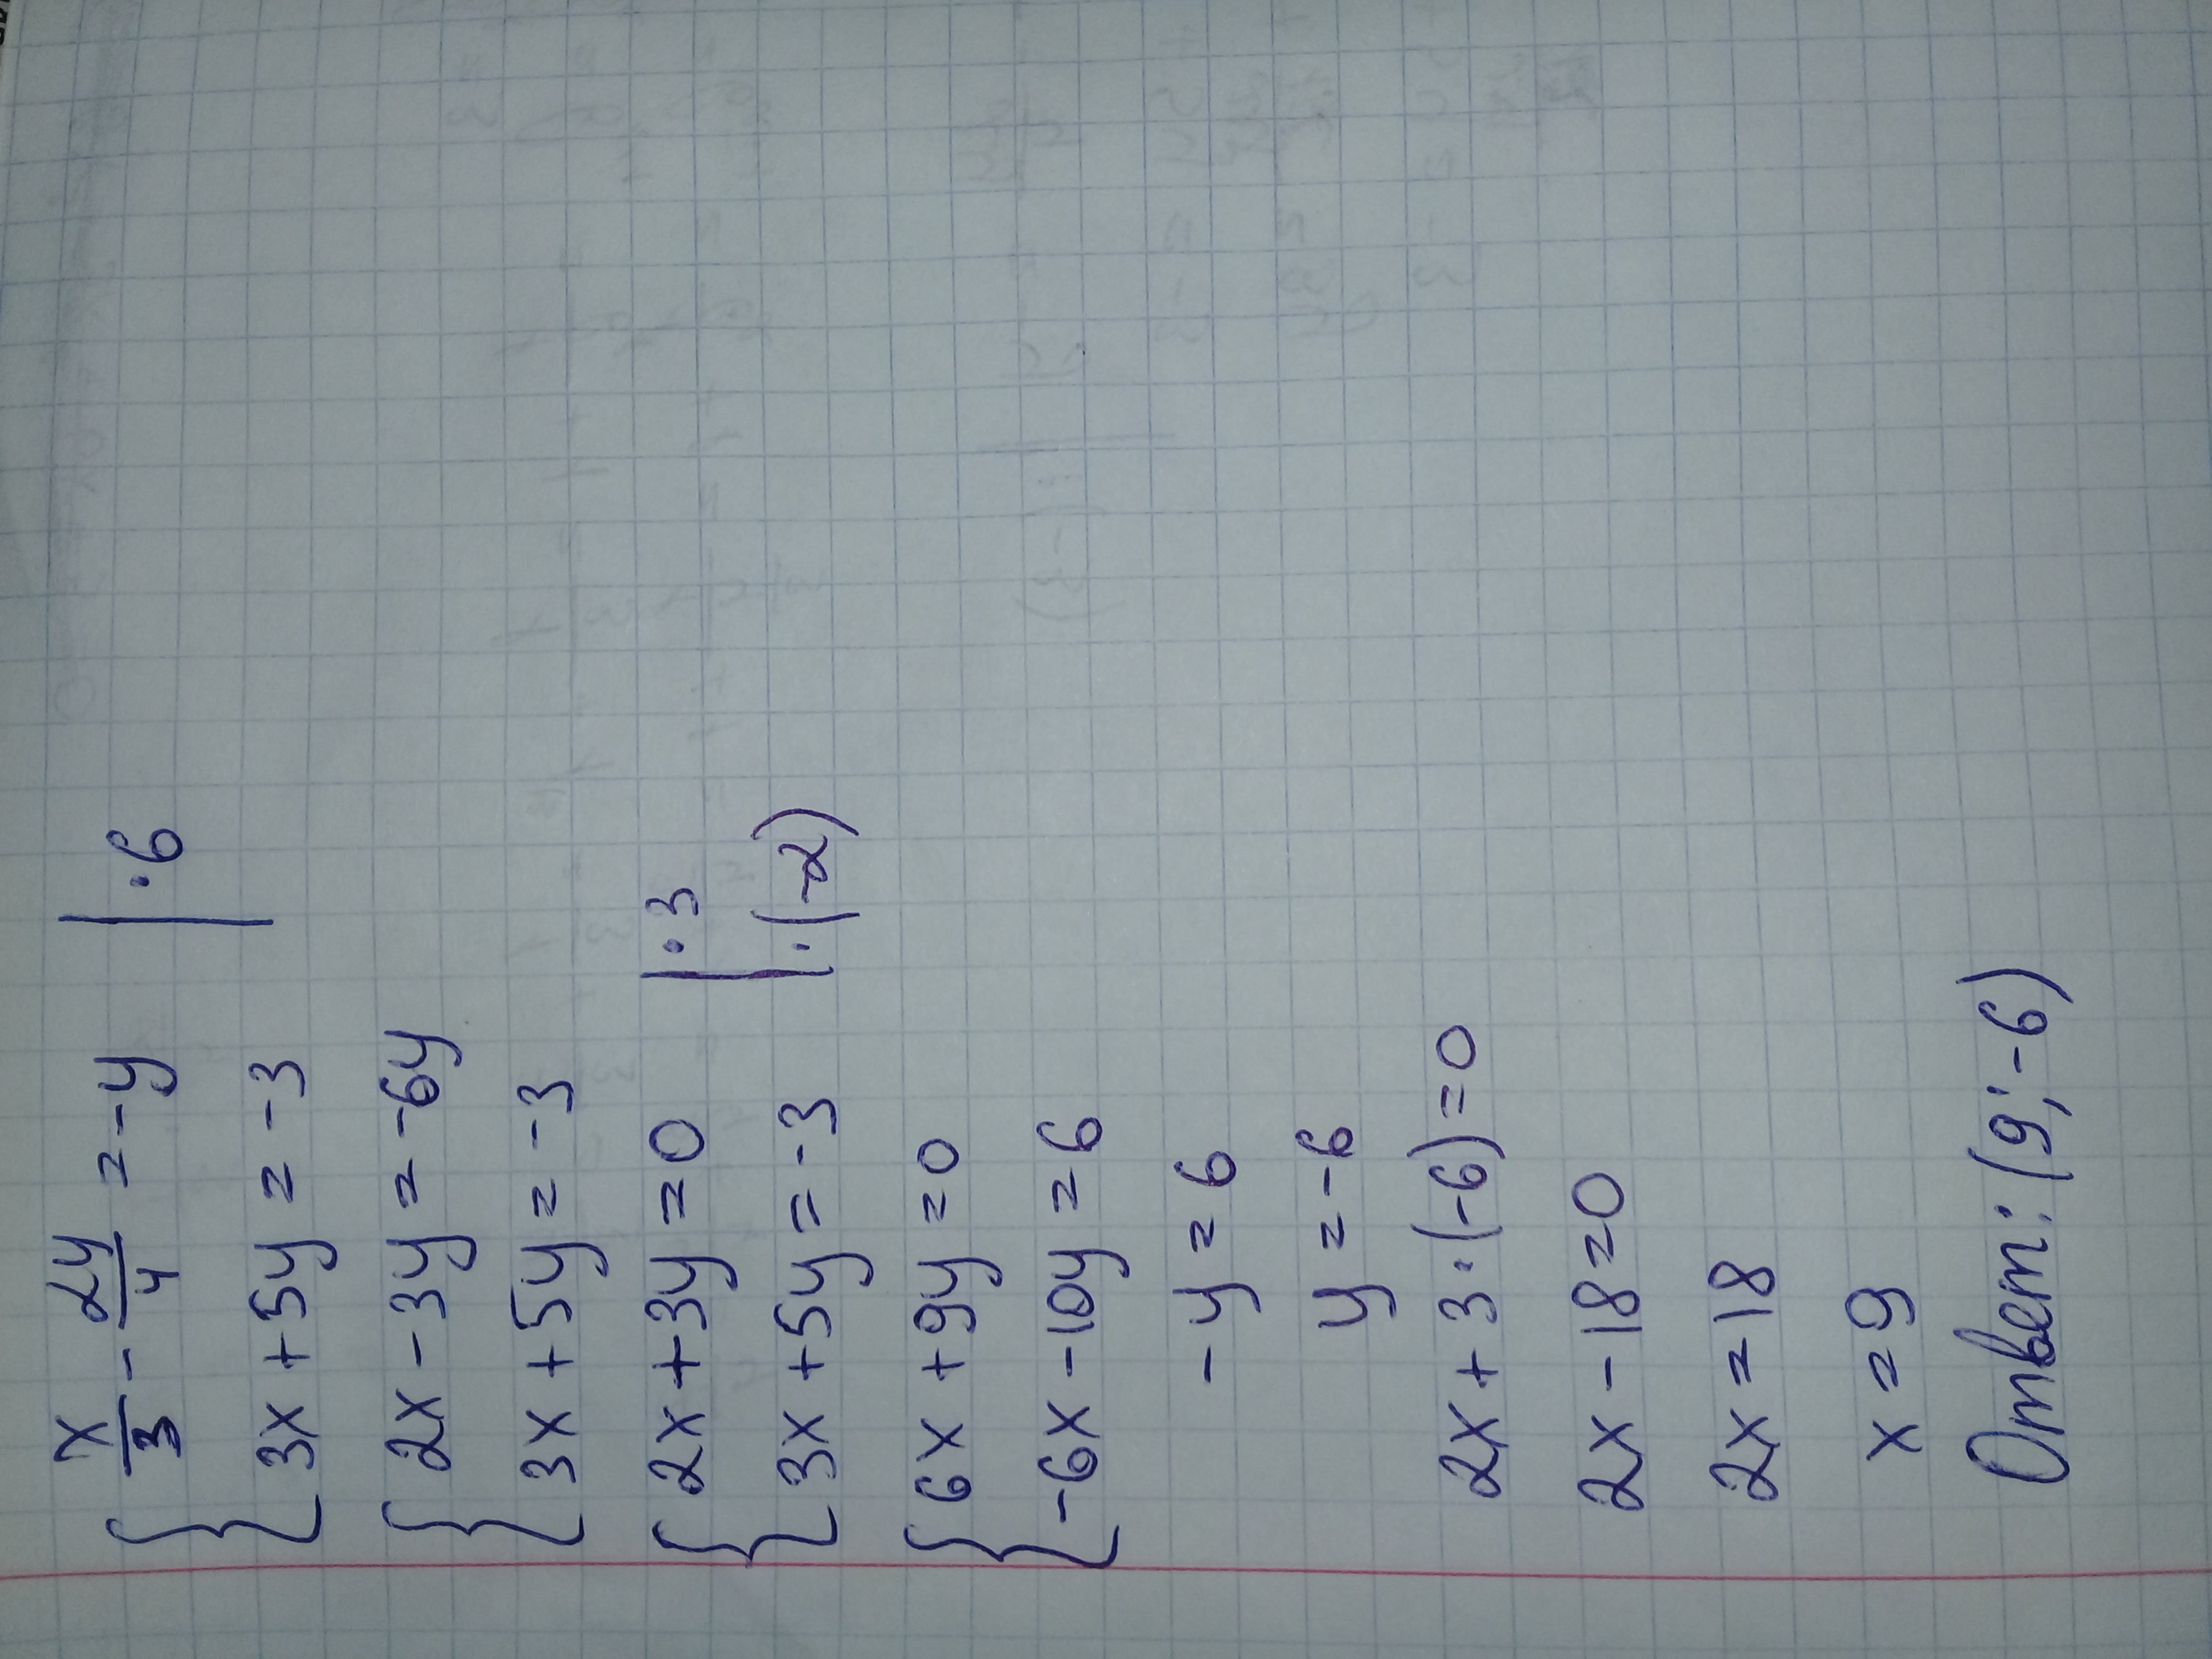 { x/3 - 2y/4 = -y |·6
3x + 5y = -3
{ 2x - 3y = -6y
3x + 5y = -3
{ 2x + 3y = 0 |·3
3x + 5y = -3 |·(-2)
{ 6x + 9y = 0
-6x - 10y = 6
-y = 6
y = -6
2x + 3·(-6) = 0
2x - 18 = 0
2x = 18
x = 9
Ответ: (9; -6)